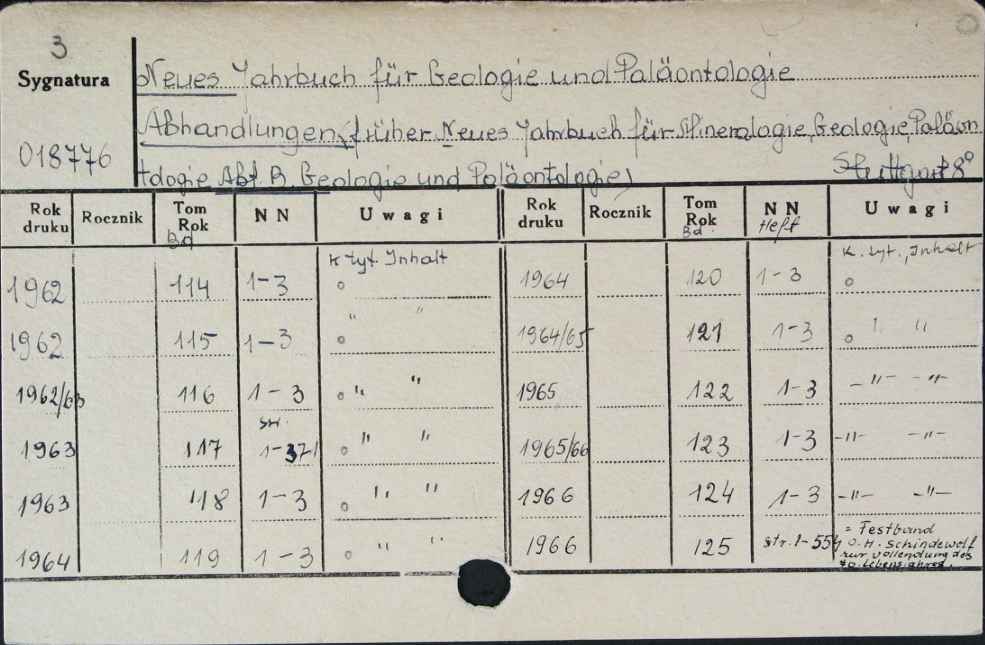 3
Sygnatura
018776
Neues Jahrbuch für Geologie und Paläontologie
Abhandlungen, (früher Neues Jahrbuch für Mineralogie, Geologie, Paläon
tologie Abt. B, Geologie und Paläontologie) Stuttgart 8°
Rok druku Rocznik Tom Rok Bd NN Uwagi Rok druku Rocznik Tom Rok Bd. NN Heft Uwagi
1962 114 1-3 K. tyt. Inhalt 1964 120 1-3 K. tyt., Inhalt
1962 115 1-3 " " 1964/65 121 1-3 "
1962/63 116 1-3 " " 1965 122 1-3 -"- -"-
1963 117 1-371 " " 1965/66 123 1-3 -"- -"-
1963 118 1-3 " " 1966 124 1-3 -"- -"-
1964 119 1-3 " " 1966 125 str. 1-554 = Festband
O.H. Schindewolf
zur Vollendung des
70. Lebensjahres.